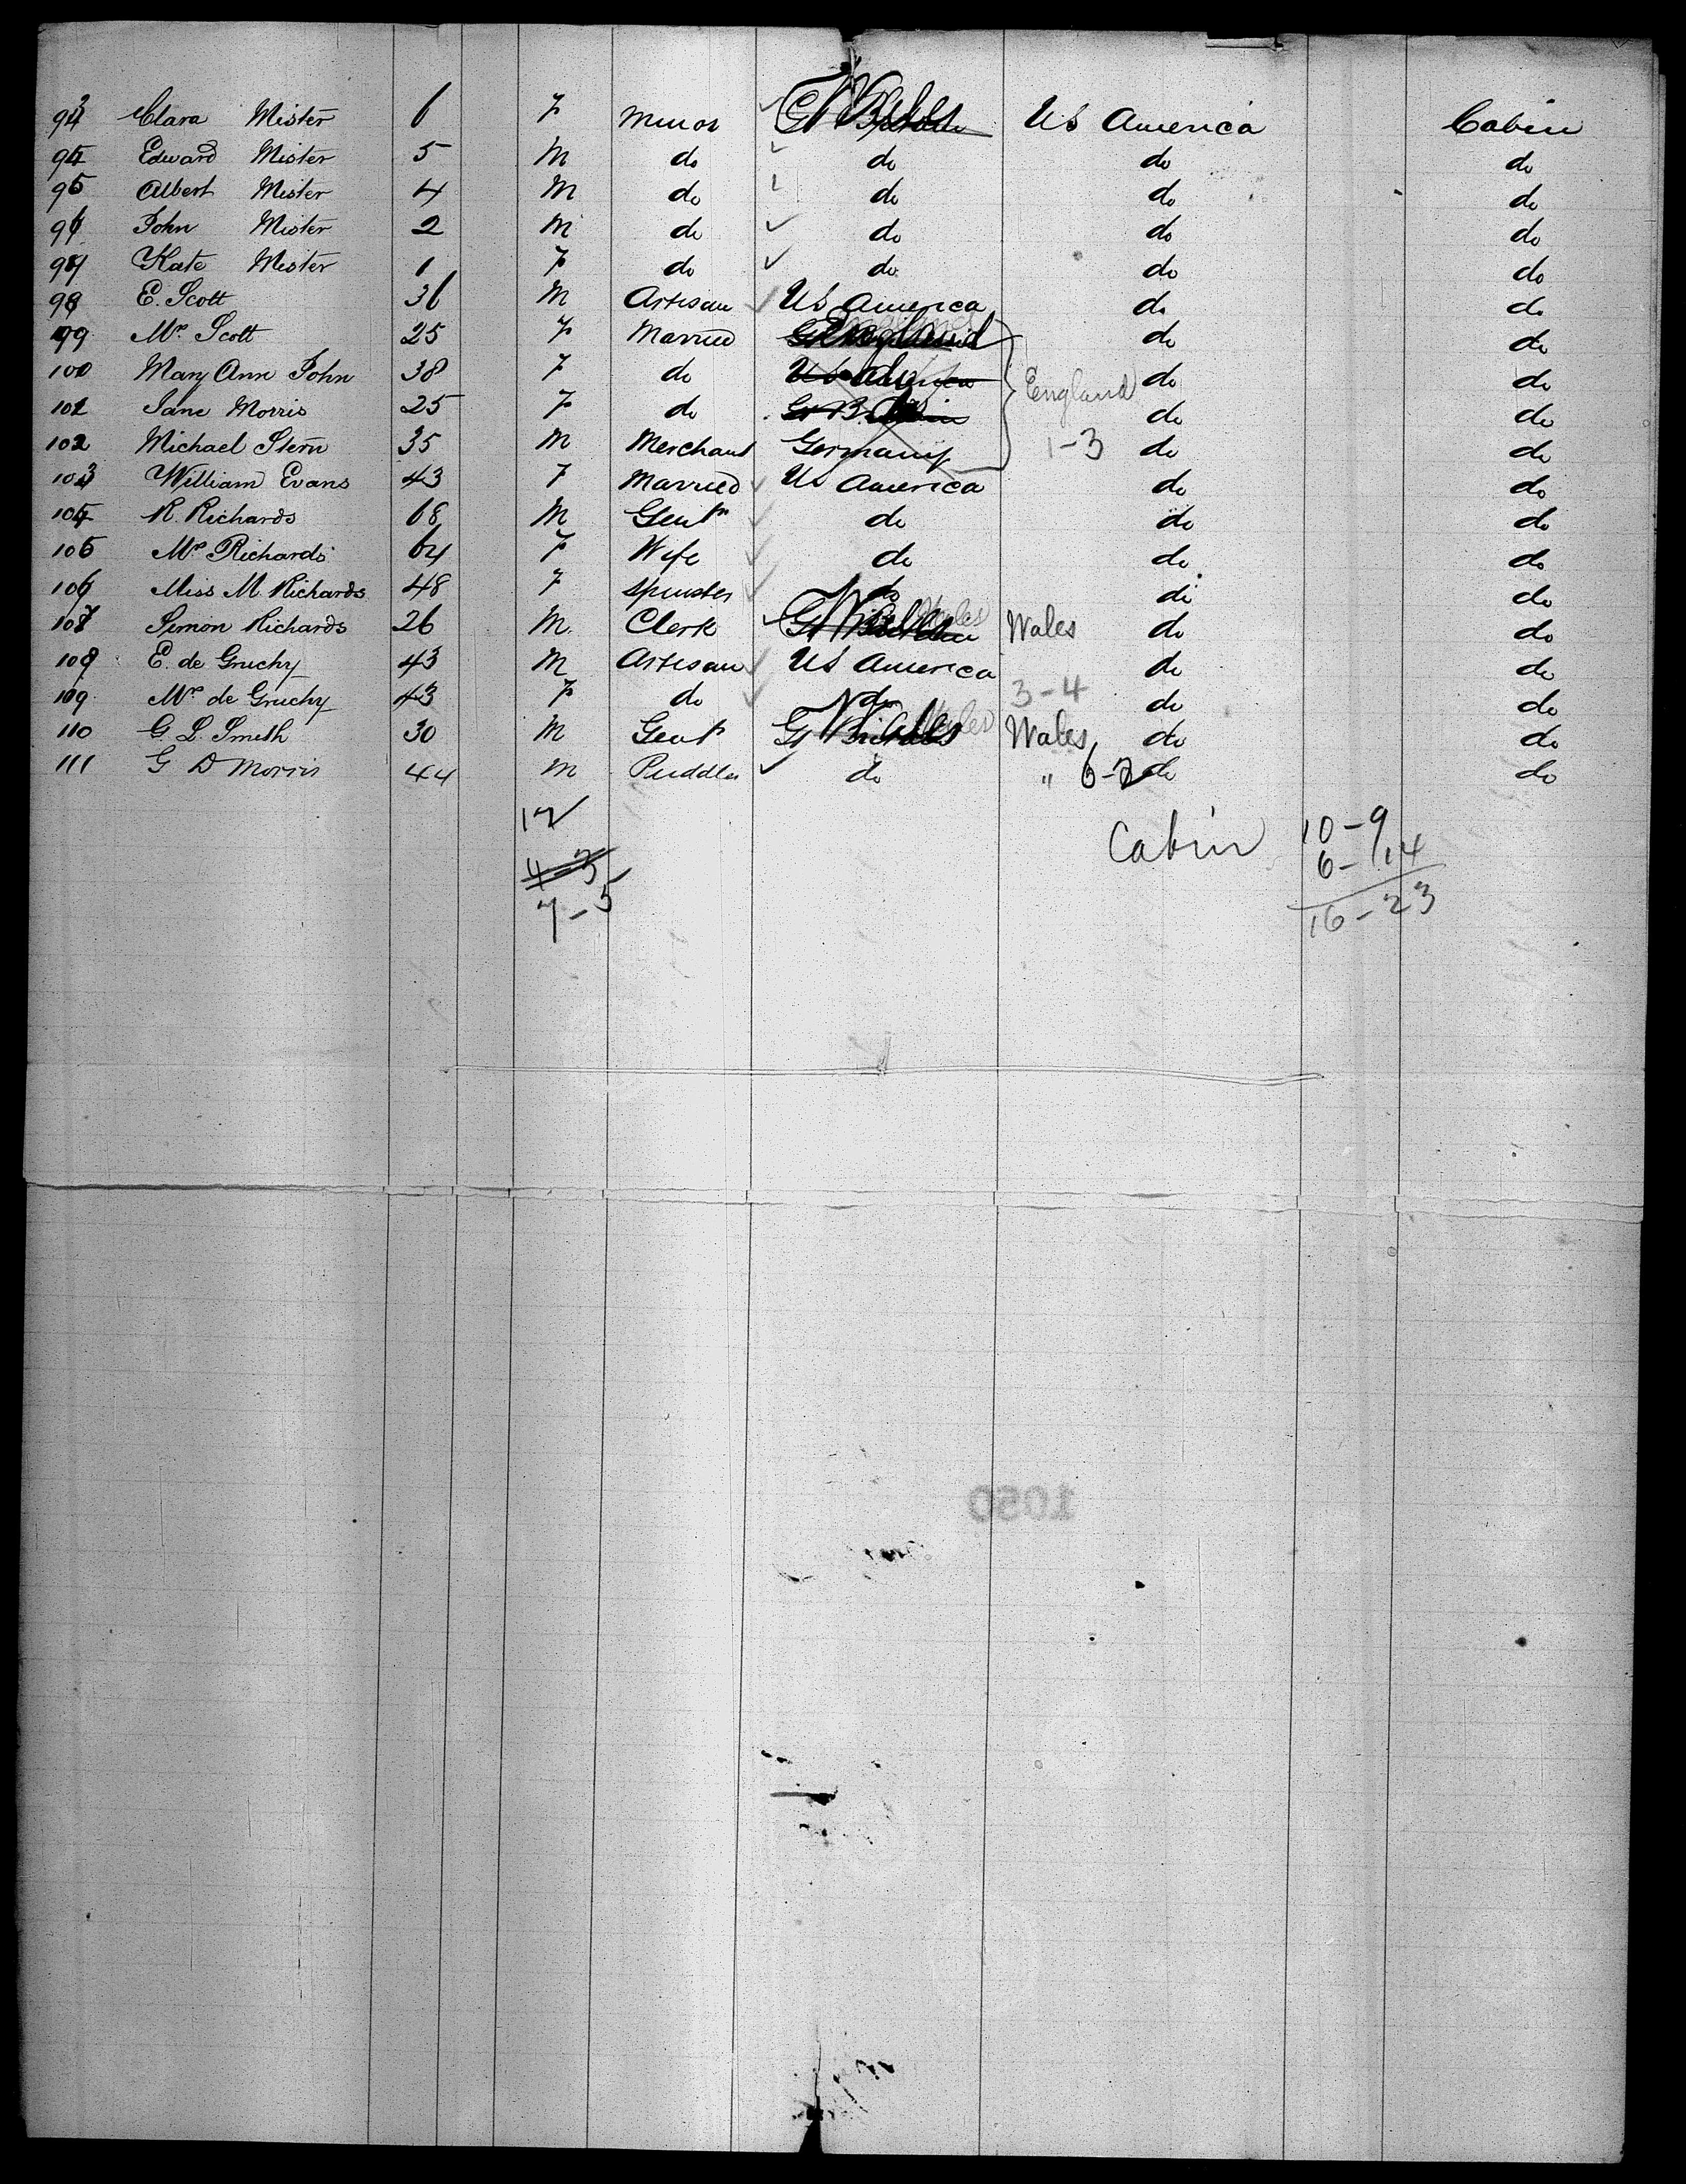 93 Clara Mister 6 F Minor Wales US America Cabin
94 Edward Mister 5 M do do do do
95 Albert Mister 4 M do do do do
96 John Mister 2 M do do do do
97 Kate Mister 1 F do do do do
98 E. Scott 36 M Artisan US America do do
99 Mrs Scott 25 F Married England do do
100 Mary Ann John 38 F do US America England do do
101 Jane Morris 25 F do Gt B do do
102 Michael Stern 35 M Merchant Germany 1-3 do do
103 William Evans 43 F Married US America do do
104 R. Richards 68 M Gentn do do do
105 Mrs Richards 64 F Wife do do do
106 Miss M Richards 48 F Spinster do do do
107 Simon Richards 26 M. Clerk Gt Britain Wales Wales do do
108 E. de Gruchy 43 M Artisan US America do do
109 Mrs de Gruchy 43 F do do 3-4 do do
110 G. L. Smith 30 M Gent Gt Wales Wales do do
111 G D Morris 44 M Puddler do " 6-2 do do
12
4-3
7-5
Cabin 10-9
6-14
16-23
1050